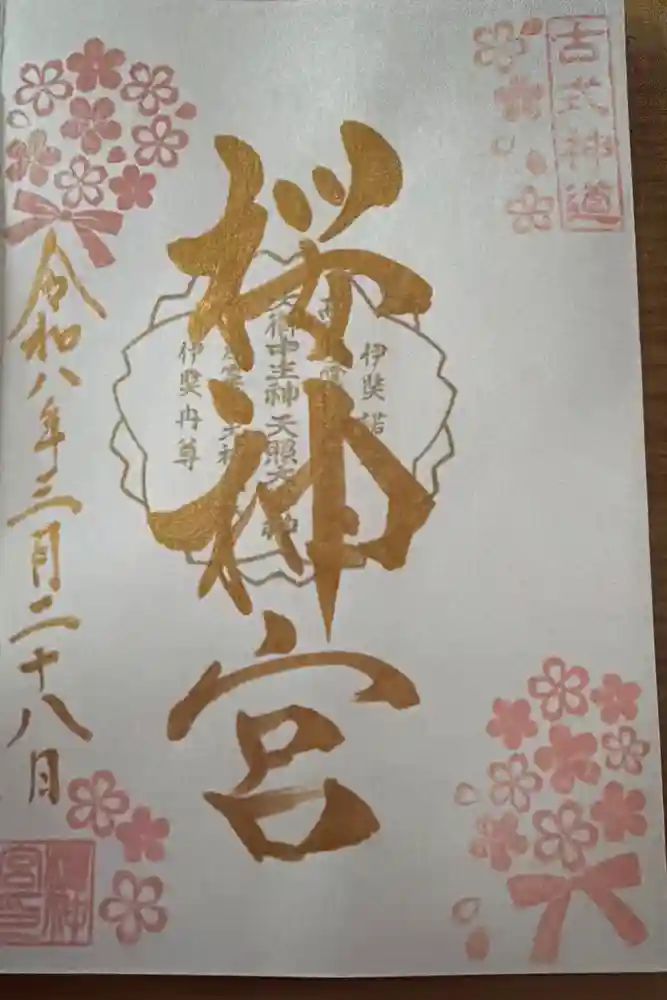 古式神道
桜神宮
伊奘諾
天御中主神 天照大神
伊奘冉尊
令和八年三月二十八日